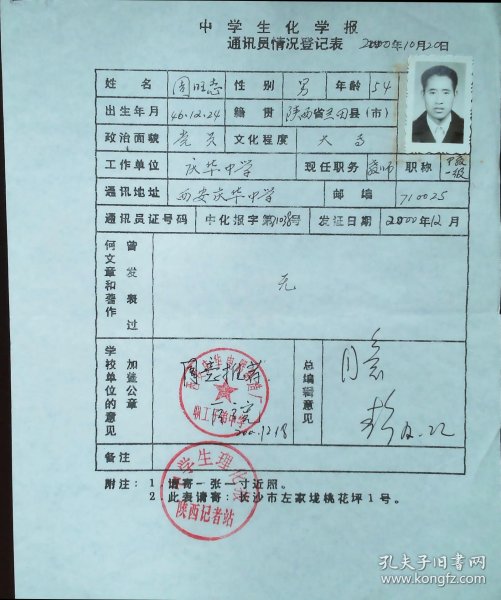 中学生化学报
通讯员情况登记表 2000年10月20日
姓名 周旺志 性别 男 年龄 54
出生年月 46.12.24 籍贯 陕西省兰田县（市）
政治面貌 党员 文化程度 大专
工作单位 庆华中学 现任职务 教师 职称 中教一级
通讯地址 西安庆华中学 邮编 710025
通讯员证号码 中化报字第 号 发证日期 2000年12月
曾发表过何文章和著作 无
加盖公章学校单位的意见 同意推荐 2000.12.18
总编辑意见 同意 12.22
备注
附注：1 请寄一张一寸近照。
2 此表请寄：长沙市左家垅桃花坪1号。
中学生理化报
陕西记者站
孔夫子旧书网
www.kongfz.com